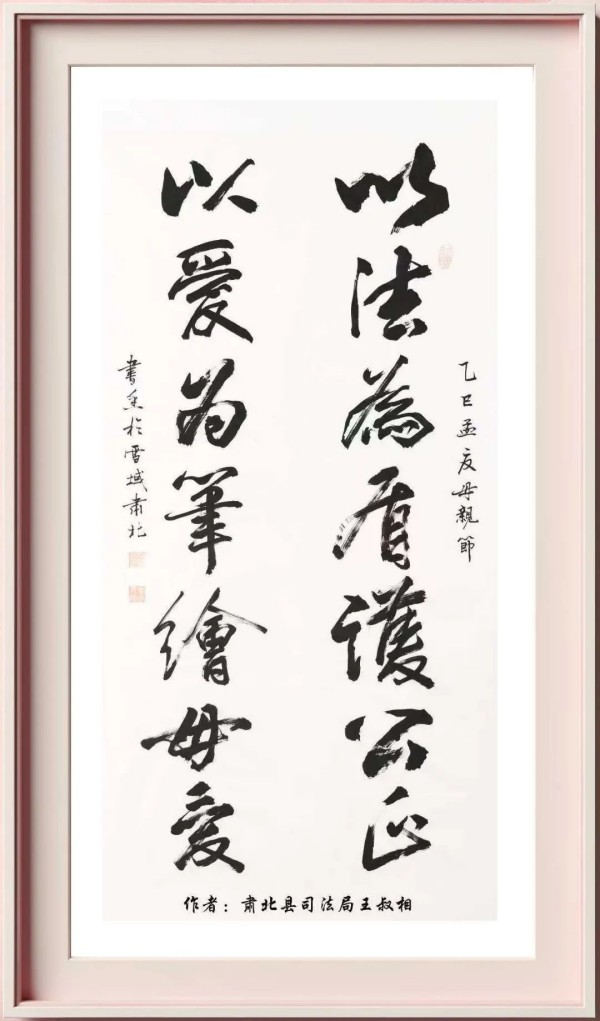 乙巳孟夏母親節
以法為盾護公正
以愛为筆繪母愛
書於雪域肅北
作者：肃北县司法局王叔相